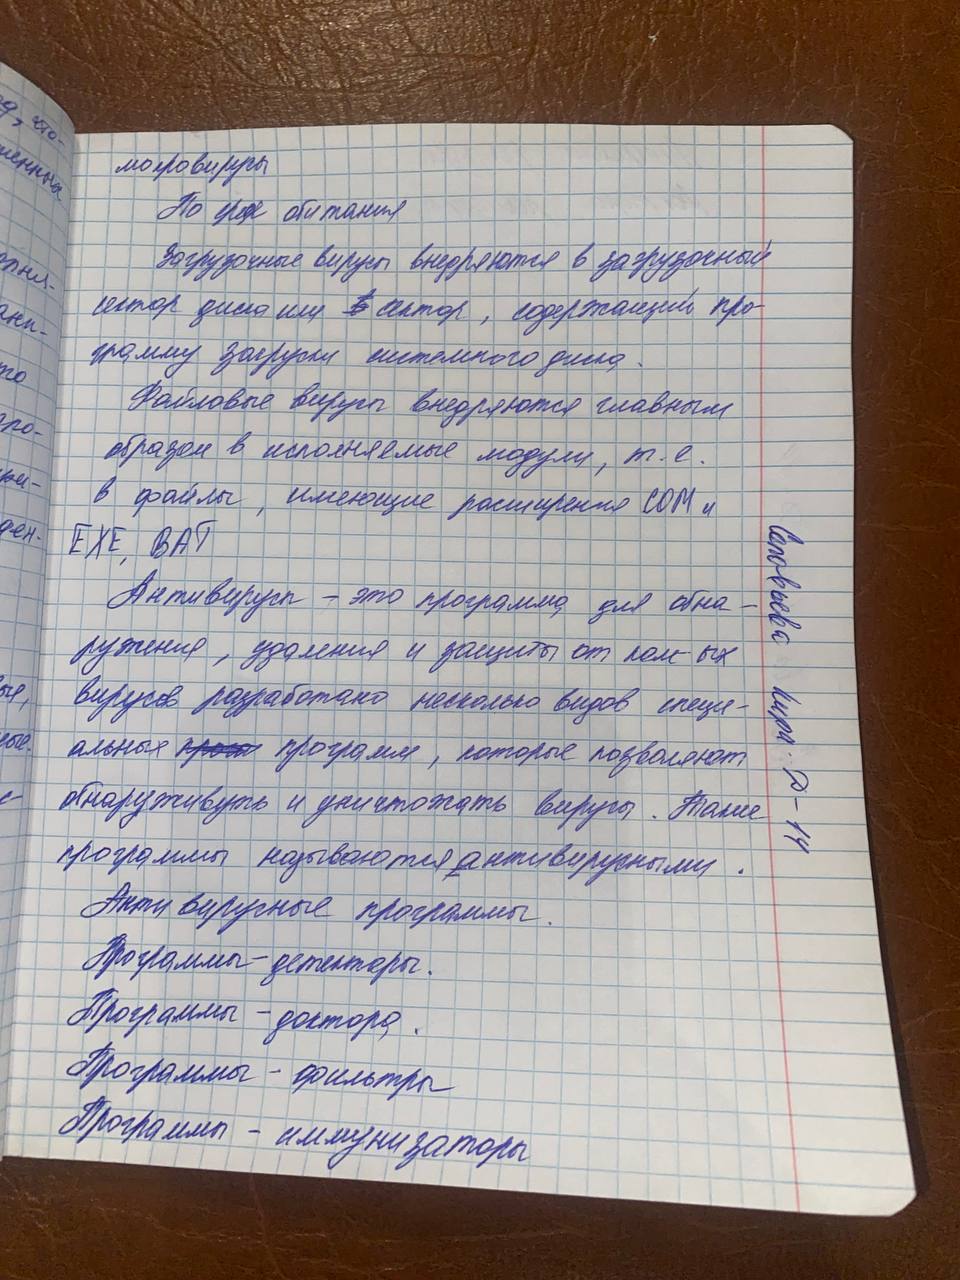 макровирусы
По сфе обитания
Загрузочные вирусы внедряются в загрузочный
сектор диска или в сектор, содержащий про-
грамму загрузки системного диска.
Файловые вирусы внедряются главным
образом в исполняемые модули, т.е.
в файлы, имеющие расширения COM и
EXE, BAT
Антивирусы – это программа для обна-
ружения, удаления и защиты от комп-ых
вирусов разработано несколько видов специ-
альных программ, которые позволяют
обнаруживать и уничтожать вирусы. Такие
программы называются антивирусными.
Антивирусные программы.
Программы-детекторы.
Программы-доктора.
Программы-фильтры
Программы-иммунизаторы
Соловьева Кира Д-14
что-
менны
ани-
то
про-
ден-
вые,
ные.
с-